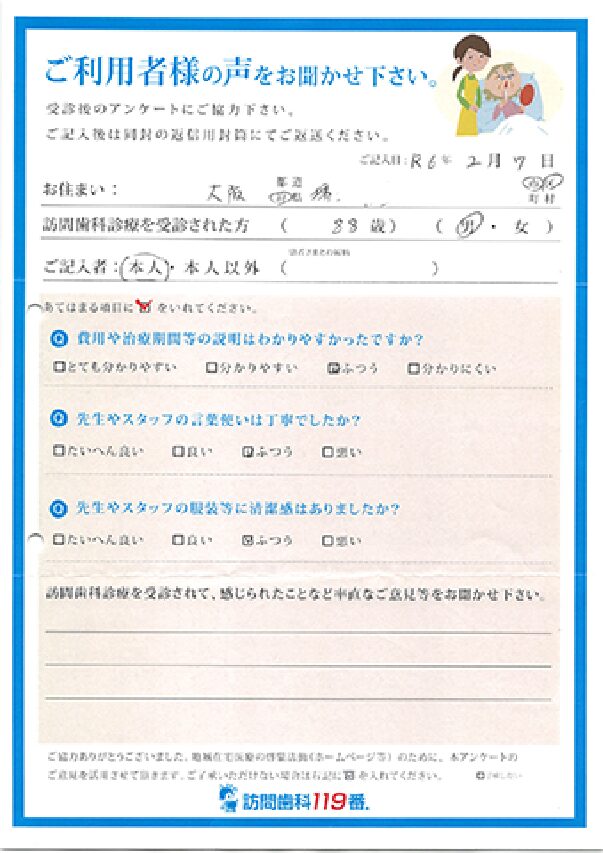 ご利用者様の声をお聞かせ下さい。
受診後のアンケートにご協力下さい。
ご記入後は同封の返信用封筒にてご返送ください。
ご記入日:R6年 2月7日
お住まい: 大阪 都道府県 堺 市区町村
訪問歯科診療を受診された方 ( 88歳) ( 男・女 )
ご記入者:本人・本人以外 ( )
あてはまる項目に をいれてください。
Q 費用や治療期間等の説明はわかりやすかったですか?
□とても分かりやすい □分かりやすい ☑ふつう □分かりにくい
Q 先生やスタッフの言葉使いは丁寧でしたか?
□たいへん良い □良い ☑ふつう □悪い
Q 先生やスタッフの服装等に清潔感はありましたか?
□たいへん良い □良い ☑ふつう □悪い
訪問歯科診療を受診されて、感じられたことなど率直なご意見等をお聞かせ下さい。
ご協力ありがとうございました。地域在宅医療の啓蒙活動(ホームページ等)のために、本アンケートの
ご意見を活用させて頂きます。ご了承いただけない場合は右記に を入れてください。
訪問歯科119番.